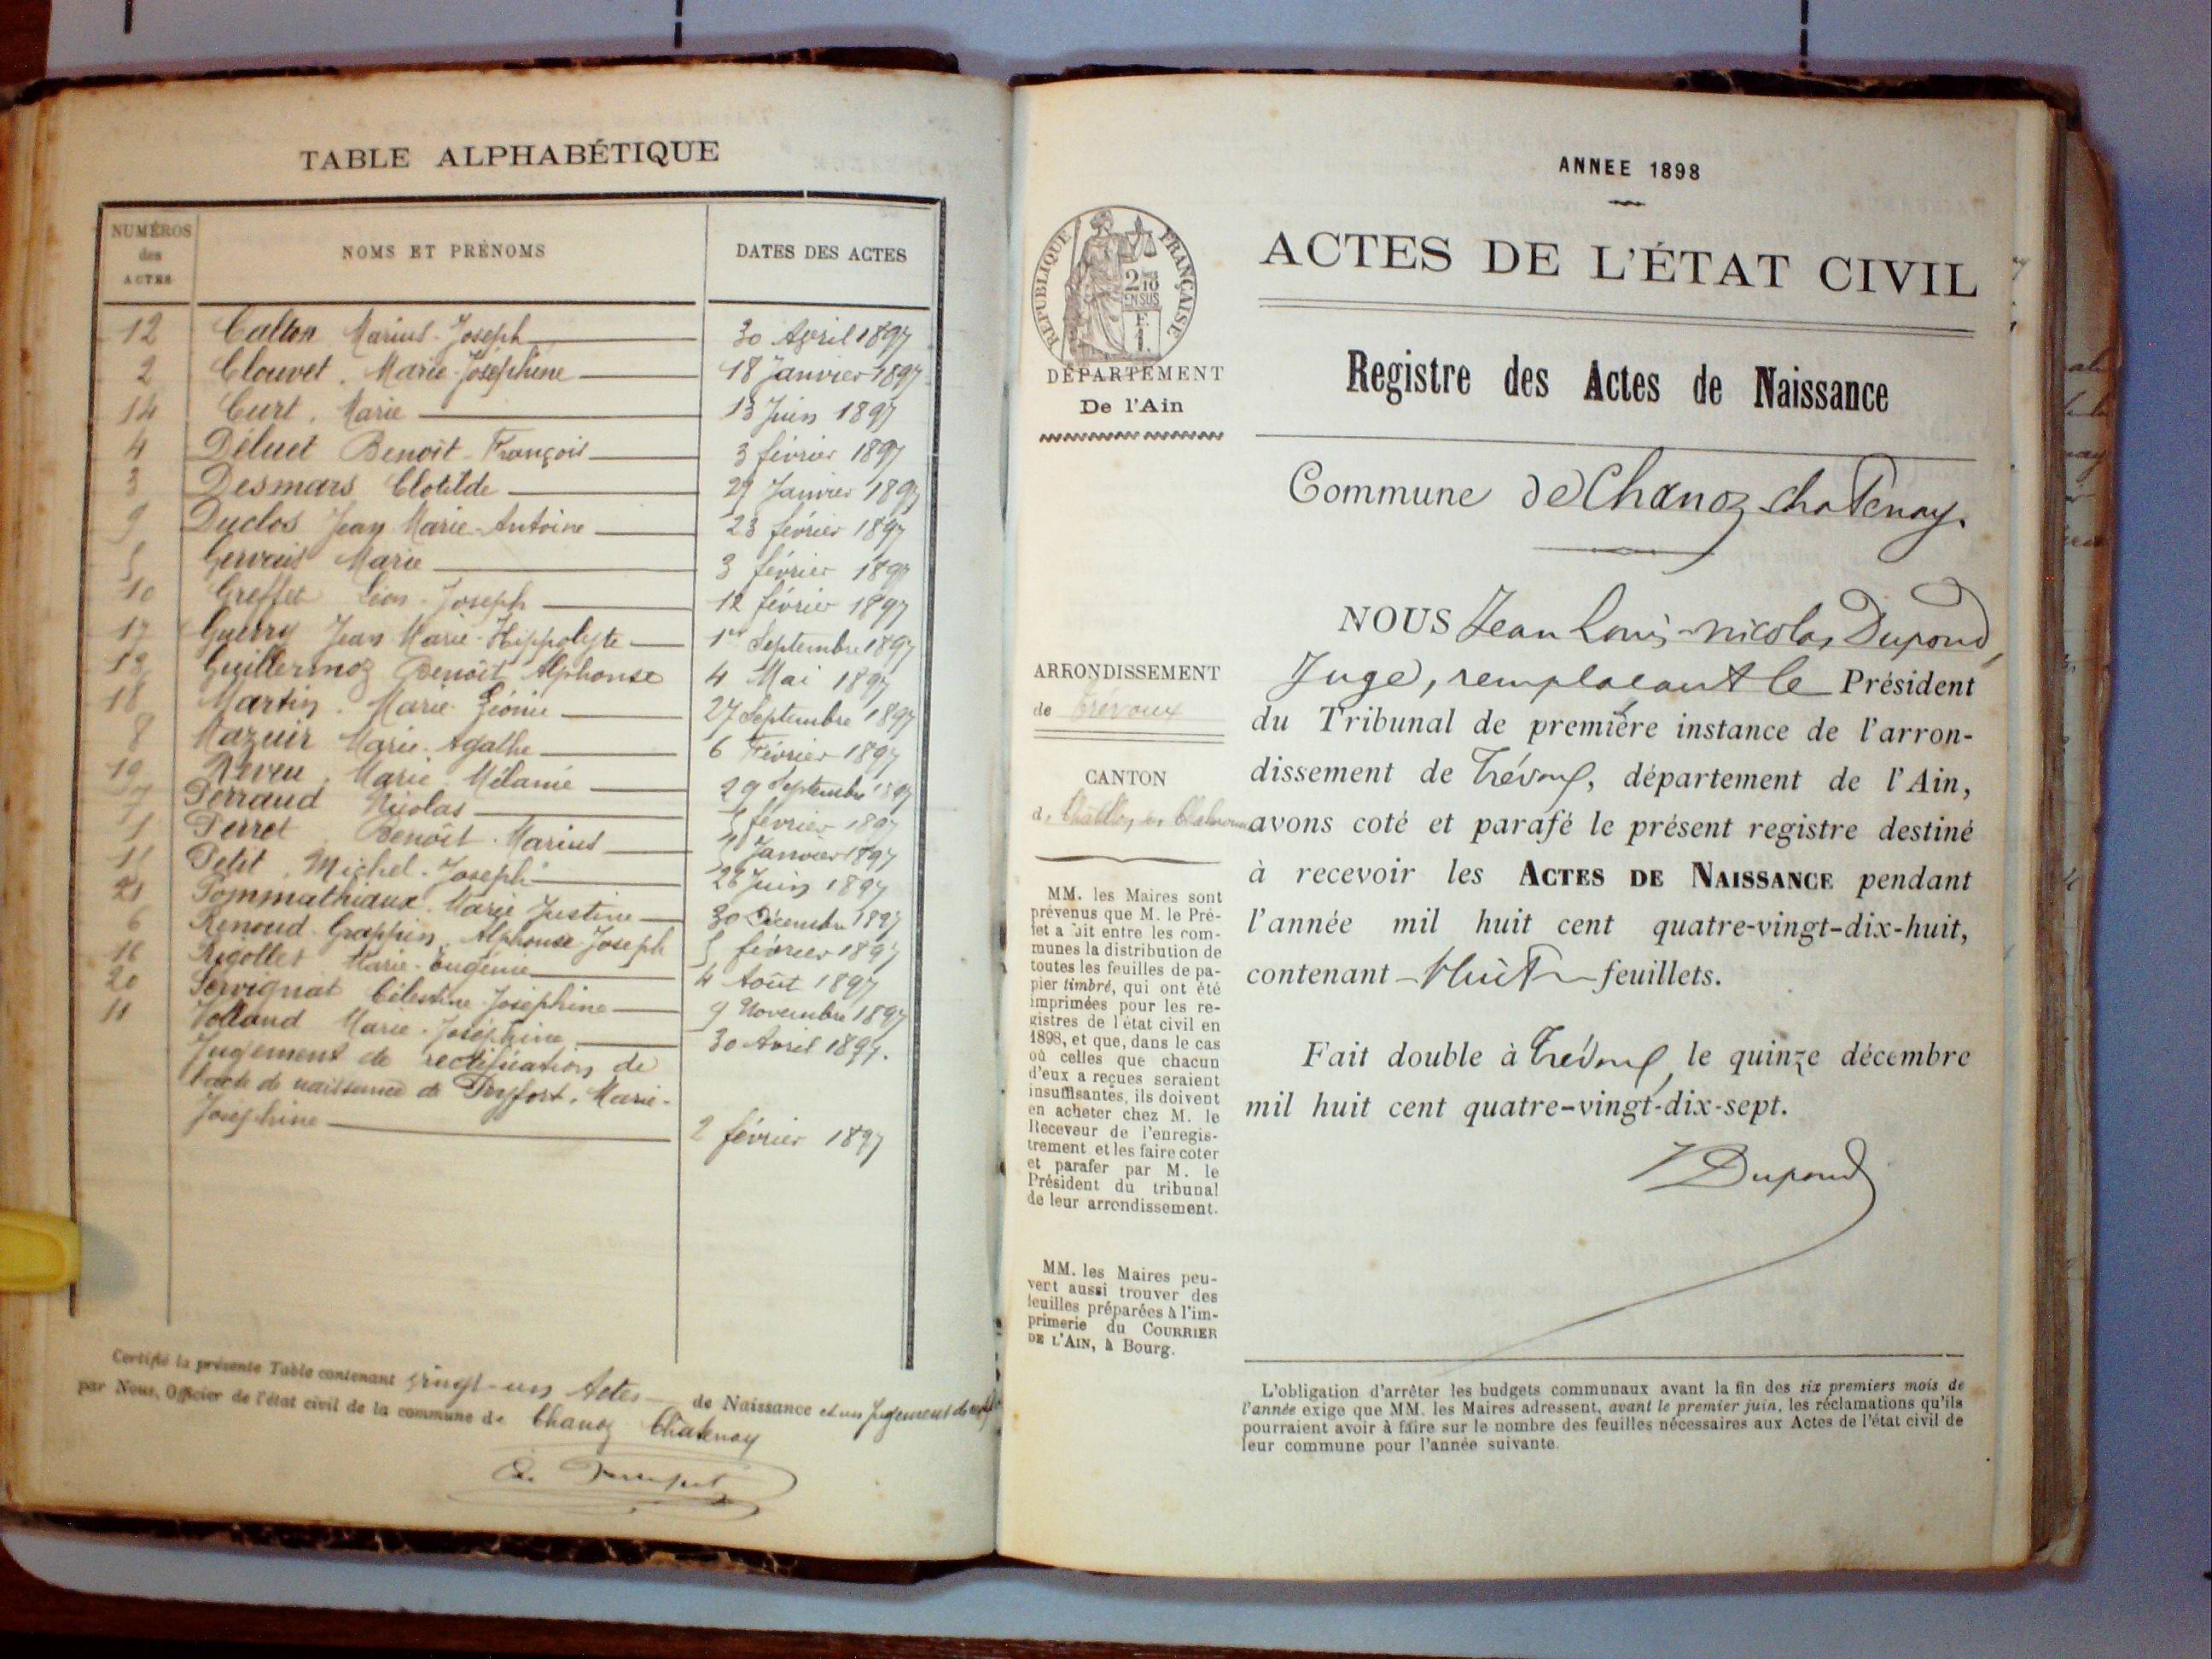 TABLE ALPHABÉTIQUE
NUMÉROS des ACTES
NOMS ET PRÉNOMS
DATES DES ACTES
12 Calton Marius-Joseph 30 Avril 1897
2 Clouvet, Marie-Joséphine 18 Janvier 1897
14 Curt, Marie 13 Juin 1897
4 Déluet Benoît-François 3 février 1897
3 Desmars Clotilde 27 Janvier 1897
9 Duclos Jean Marie-Antoine 23 février 1897
5 Gervais Marie 3 février 1897
10 Greffet Léon-Joseph 12 février 1897
17 Guerry Jean Marie-Hippolyte 1er Septembre 1897
13 Guillermoz Benoît Alphonse 4 Mai 1897
18 Martin, Marie-Léonie 27 Septembre 1897
8 Mazuir Marie-Agathe 6 Février 1897
19 Neveu, Marie Mélanie 29 Septembre 1897
7 Perraud Nicolas 5 février 1897
1 Perret, Benoît-Marius Janvier 1897
Petit, Michel-Joseph 26 Juin 1897
21 Pommathiaux, Marie Justine 30 Décembre 1897
6 Renoud-Grappin, Alphonse-Joseph 5 février 1897
16 Rigollet Marie-Eugénie 4 Août 1897
20 Servignat Célestine-Joséphine 9 Novembre 1897
11 Volland Marie-Joséphine 30 Avril 1897.
Jugement de rectification de
l'acte de naissance de Marie-
Joséphine 2 février 1897
Certifié la présente Table contenant vingt-un Actes de Naissance et un jugement de
par Nous, Officier de l'état civil de la commune de Chanoz Chatenay
ANNEE 1898
ACTES DE L'ÉTAT CIVIL
REPUBLIQUE FRANÇAISE
2/10 EN SUS
DÉPARTEMENT
De l'Ain
Registre des Actes de Naissance
Commune de Chanoz-chatenay.
NOUS Jean Louis-nicolas Dupond,
ARRONDISSEMENT
de Trévoux
CANTON
de Châtillon sur Chalaronne
Juge, remplacant le Président
du Tribunal de première instance de l'arron-
dissement de Trévoux, département de l'Ain,
avons coté et parafé le présent registre destiné
à recevoir les ACTES DE NAISSANCE pendant
l'année mil huit cent quatre-vingt-dix-huit,
contenant huit feuillets.
Fait double à Trévoux, le quinze décembre
mil huit cent quatre-vingt-dix-sept.
Dupond
MM. les Maires sont
prévenus que M. le Pré-
fet a fait entre les com-
munes la distribution de
toutes les feuilles de pa-
pier timbré, qui ont été
imprimées pour les re-
gistres de l'état civil en
1898, et que, dans le cas
où celles que chacun
d'eux a reçues seraient
insuffisantes, ils doivent
en acheter chez M. le
Receveur de l'enregis-
trement et les faire coter
et parafer par M. le
Président du tribunal
de leur arrondissement.
MM. les Maires peu-
vent aussi trouver des
feuilles préparées à l'im-
primerie du COURRIER
DE L'AIN, à Bourg.
L'obligation d'arrêter les budgets communaux avant la fin des six premiers mois de
l'année exige que MM. les Maires adressent, avant le premier juin, les réclamations qu'ils
pourraient avoir à faire sur le nombre des feuilles nécessaires aux Actes de l'état civil de
leur commune pour l'année suivante.